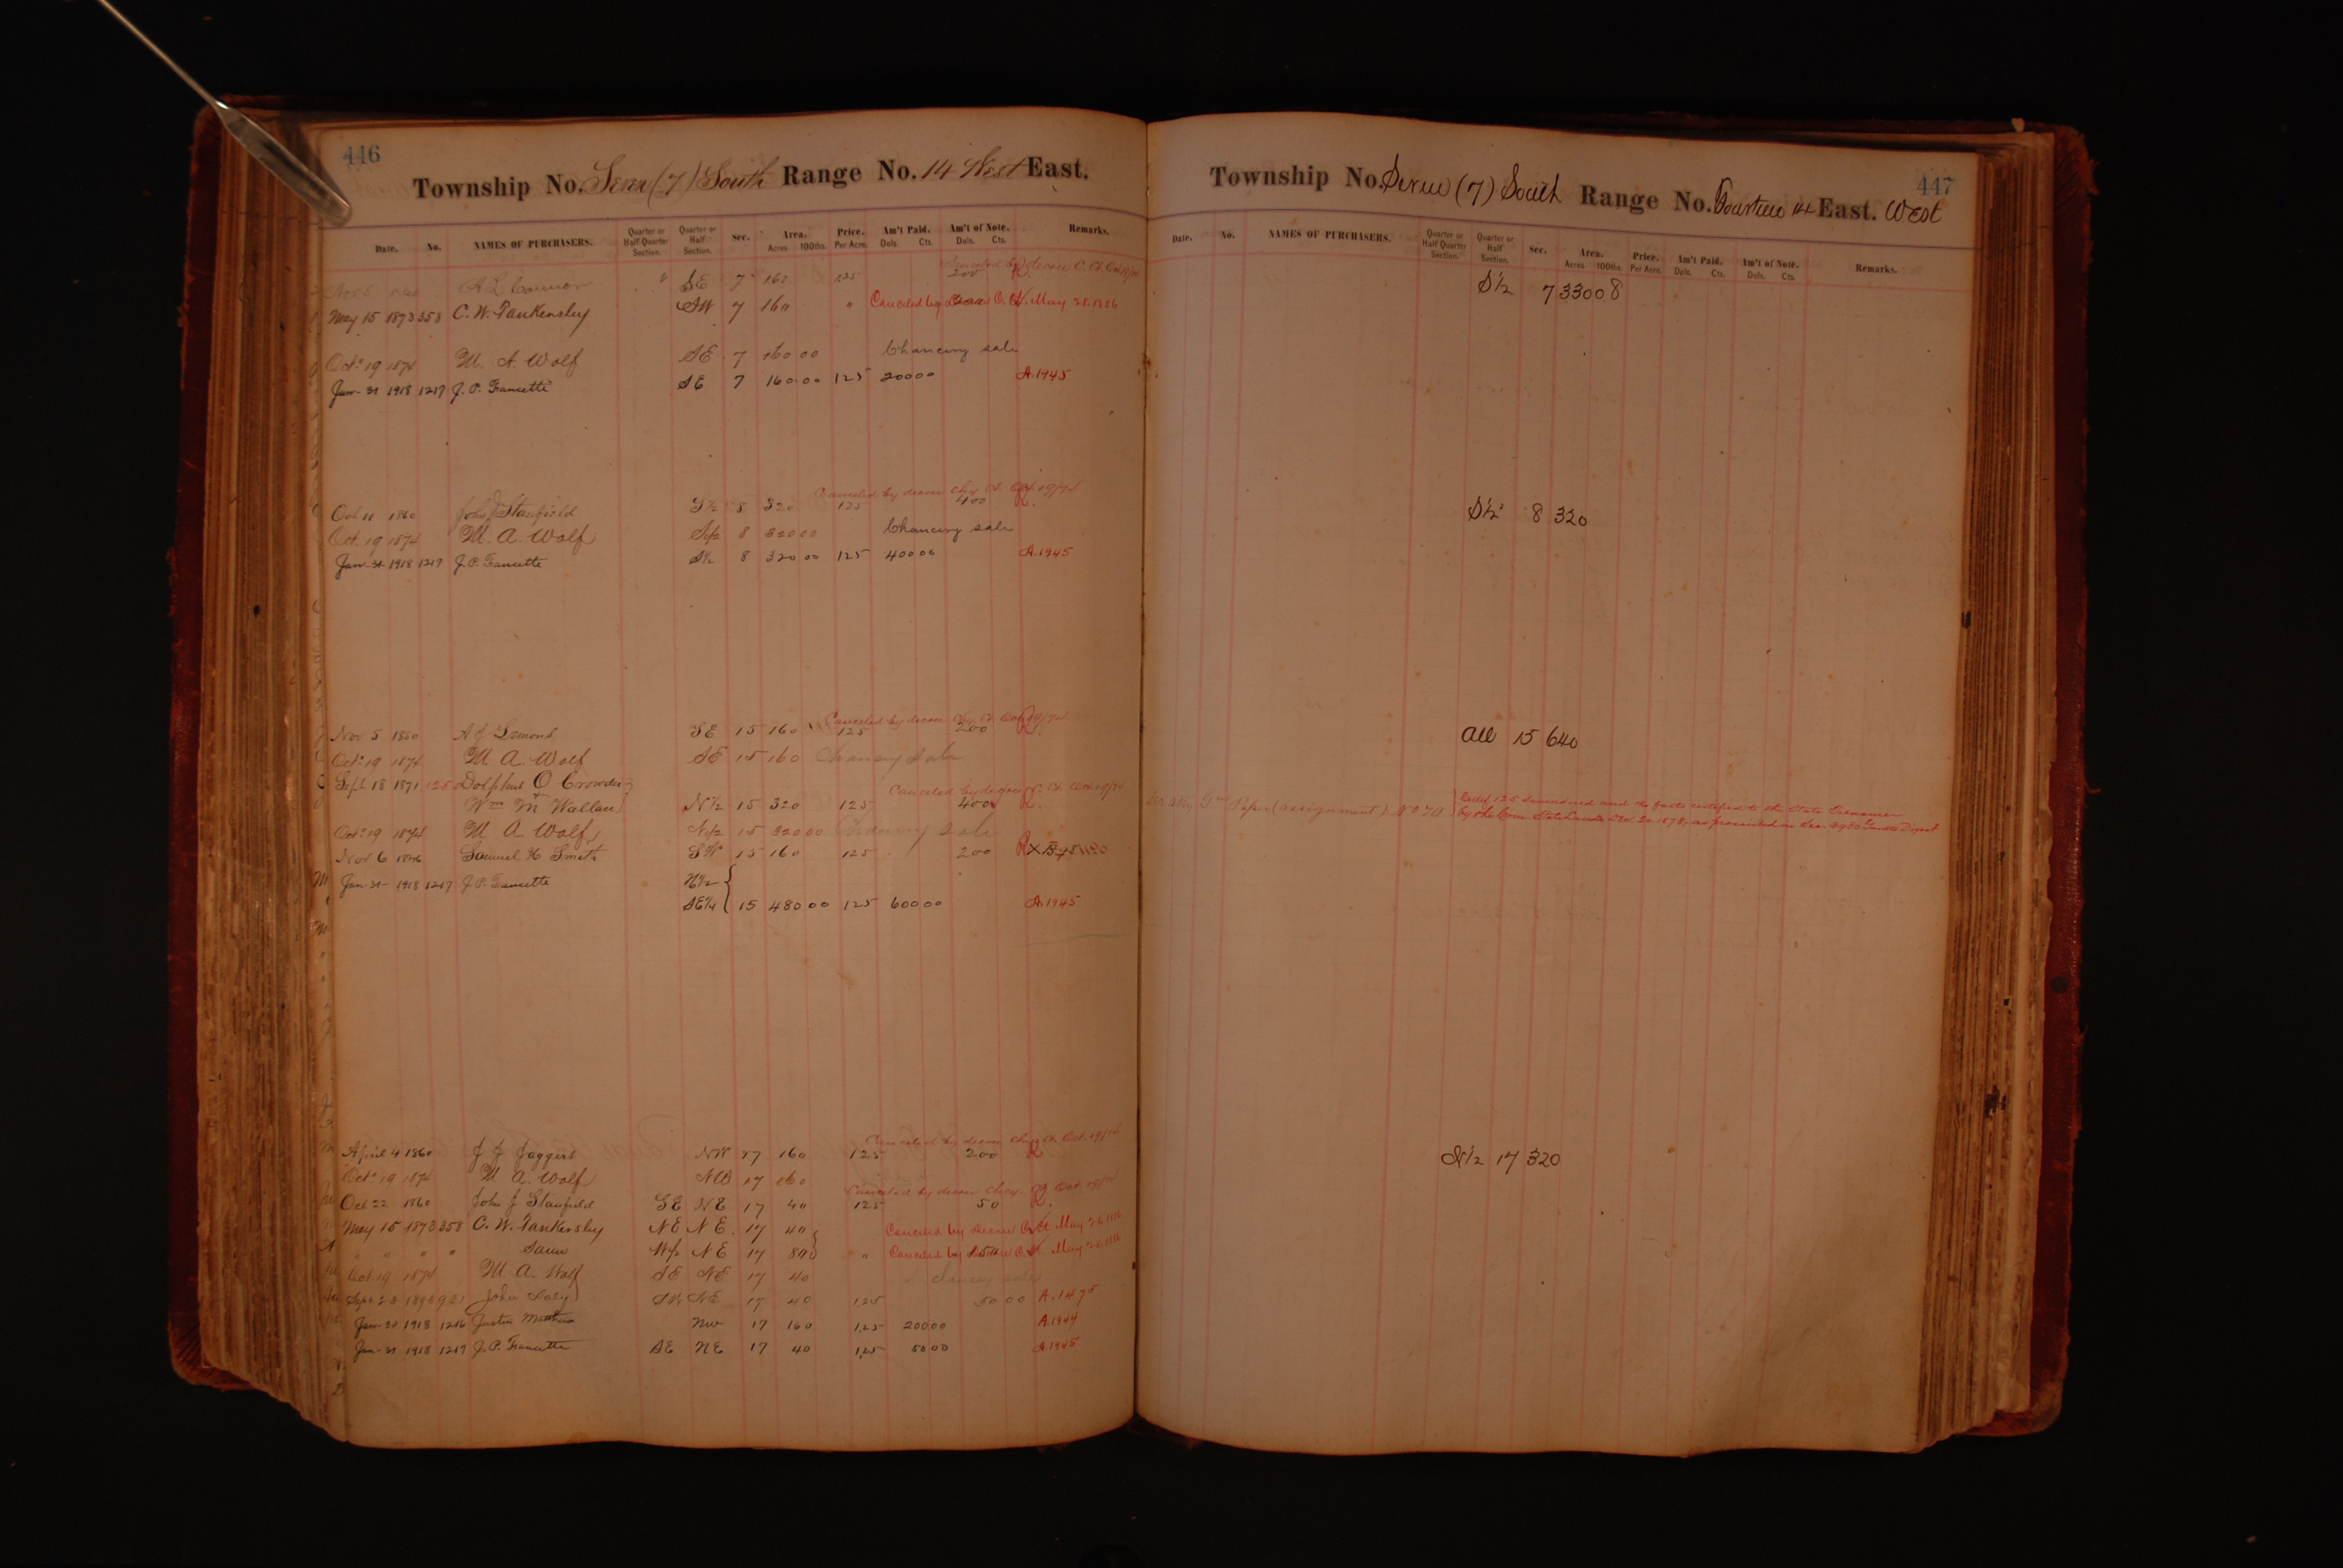 446
Township No. Seven (7) South Range No. 14 West East.
Date. No. NAMES OF PURCHASERS. Quarter or Half Quarter Section. Quarter or Half Section. Sec. Area. Acres 100ths. Price. Per Acre. Am't Paid. Dols. Cts. Am't of Note. Dols. Cts. Remarks.
Canceled by decree C. Ct. Oct 19/74
Nov 5 1860 A L Connor " SE 7 160 125 200 R
May 15 1873 358 C. W. Tankersley SW 7 160 " Canceled by Decree C. Ct. May 28. 1886
Oct. 19 1874 M. A. Wolf SE 7 160 00 Chancery sale
Jan- 31 1918 1217 J. P. Faucette SE 7 160 00 125 200 00 A. 1945
Canceled by decree Chy Ct. Oct. 19/74
Oct 11 1860 John J Stanfield S½ 8 320 125 400 R.
Oct. 19 1874 M. A. Wolf S½ 8 320 00 Chancery sale
Jan- 31 1918 1217 J. P. Faucette S½ 8 320 00 125 400 00 A. 1945
Canceled by decree Chy. Ct. Oct 19/74
Nov 5 1850 A J SE 15 160 125 200 R.
Oct. 19 1874 M A. Wolf SE 15 160 Chancy Sale
Sept 18 1871 125 Dolphus O Crowder
Canceled by degree C. Ct. Oct. 19/74
Wm M Wallace N½ 15 320 125 400 R
Oct. 19 1874 M A Wolf N½ 15 320 00 Chancery Sale
Nov 6 1846 Samuel H Smith SW 15 160 125 200 R X
Jan- 31- 1918 1217 J. P. Faucette N½
SE¼ 15 480 00 125 600 00 A. 1945
Canceled by decree Chy Ct. Oct. 19/74
April 4 1860 J J Jaggers NW 17 160 125 200 R
Oct. 19 1874 M A. Wolf NW 17 160
Canceled by decree Chcy. Ct. Oct. 19/74
Oct 22 1860 John J Stanfield SE NE 17 40 125 50 R.
May 15 1873 358 C. W. Tankersley NE NE. 17 40 Canceled by Decree C. Ct. May 28. 1886
" " " " Same W½ NE 17 80 " Canceled by Decree C. Ct. May 28. 1886
Oct. 19 1874 M. A. Wolf SE NE 17 40 Chancey sale
Sept. 23 921 John SW NE 17 40 125 50 00 A. 1475
Jan- 30 1918 1216 Justin Matthews NW 17 160 1.25 200 00 A. 1944
Jan- 31 1918 1217 J. P. Faucette SE NE 17 40 1.25 50 00 A. 1945
447
Township No. Seven (7) South Range No. Fourteen 14 East. West
Date. No. NAMES OF PURCHASERS. Quarter or Half Quarter Section. Quarter or Half Section. Sec. Area. Acres 100ths. Price. Per Acre. Am't Paid. Dols. Cts. Am't of Note. Dols. Cts. Remarks.
S½ 7 330 08
S½ 8 320
All 15 640
Paper (assignment) No 70
Certif 125 surrendered and the facts certified to the State Treasurer
by the Com State Lands Dec. 20. 1878, as provided in Sec. Gantts Digest
N½ 17 320